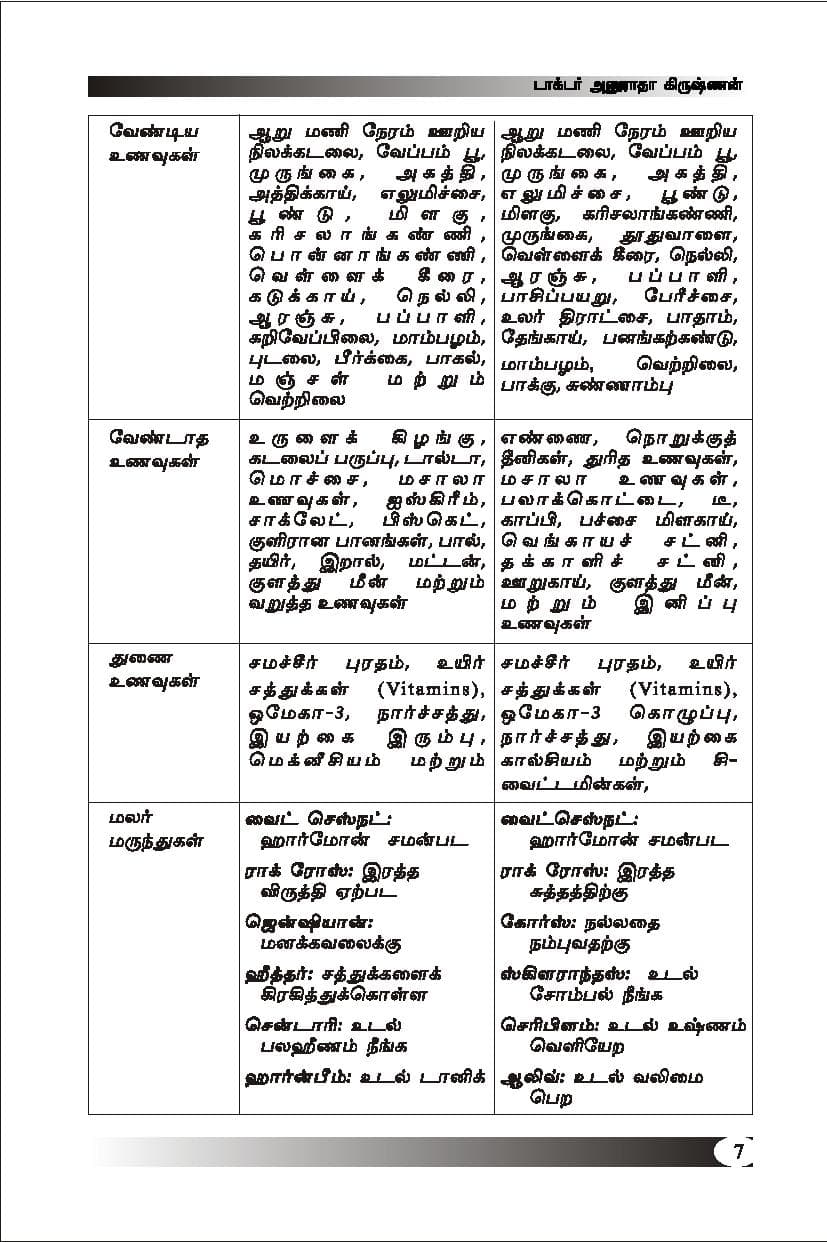 டாக்டர் அனுராதா கிருஷ்ணன்
வேண்டிய
உணவுகள்
ஆறு மணி நேரம் ஊறிய
நிலக்கடலை, வேப்பம் பூ,
முருங்கை, அகத்தி,
அத்திக்காய், எலுமிச்சை,
பூண்டு, மிளகு,
கரிசலாங்கண்ணி,
பொன்னாங்கண்ணி,
வெள்ளைக் கீரை,
கடுக்காய், நெல்லி,
ஆரஞ்சு, பப்பாளி,
கறிவேப்பிலை, மாம்பழம்,
புடலை, பீர்க்கை, பாகல்,
மஞ்சள் மற்றும்
வெற்றிலை
ஆறு மணி நேரம் ஊறிய
நிலக்கடலை, வேப்பம் பூ,
முருங்கை, அகத்தி,
எலுமிச்சை, பூண்டு,
மிளகு, கரிசலாங்கண்ணி,
முருங்கை, தூதுவாளை,
வெள்ளைக் கீரை, நெல்லி,
ஆரஞ்சு, பப்பாளி,
பாசிப்பயறு, பேரீச்சை,
உலர் திராட்சை, பாதாம்,
தேங்காய், பனங்கற்கண்டு,
மாம்பழம், வெற்றிலை,
பாக்கு, சுண்ணாம்பு
வேண்டாத
உணவுகள்
உருளைக் கிழங்கு,
கடலைப் பருப்பு, டால்டா,
மொச்சை, மசாலா
உணவுகள், ஐஸ்கிரீம்,
சாக்லேட், பிஸ்கெட்,
குளிரான பானங்கள், பால்,
தயிர், இறால், மட்டன்,
குளத்து மீன் மற்றும்
வறுத்த உணவுகள்
எண்ணை, நொறுக்குத்
தீனிகள், துரித உணவுகள்,
மசாலா உணவுகள்,
பலாக்கொட்டை, டீ,
காப்பி, பச்சை மிளகாய்,
வெங்காயச் சட்னி,
தக்காளிச் சட்னி,
ஊறுகாய், குளத்து மீன்,
மற்றும் இனிப்பு
உணவுகள்
துணை
உணவுகள்
சமச்சீர் புரதம், உயிர்
சத்துக்கள் (Vitamins),
ஒமேகா-3, நார்ச்சத்து,
இயற்கை இரும்பு,
மெக்னீசியம் மற்றும்
சமச்சீர் புரதம், உயிர்
சத்துக்கள் (Vitamins),
ஒமேகா-3 கொழுப்பு,
நார்ச்சத்து, இயற்கை
கால்சியம் மற்றும் சி-
வைட்டமின்கள்,
மலர்
மருந்துகள்
வைட் செஸ்நட்:
ஹார்மோன் சமன்பட
ராக் ரோஸ்: இரத்த
விருத்தி ஏற்பட
ஜென்ஷியான்:
மனக்கவலைக்கு
ஹீத்தர்: சத்துக்களைக்
கிரகித்துக்கொள்ள
சென்டாரி: உடல்
பலஹீணம் நீங்க
ஹார்ன்பீம்: உடல் டானிக்
வைட்செஸ்நட்:
ஹார்மோன் சமன்பட
ராக் ரோஸ்: இரத்த
சுத்தத்திற்கு
கோர்ஸ்: நல்லதை
நம்புவதற்கு
ஸ்கிளராந்தஸ்: உடல்
சோம்பல் நீங்க
செரிபிளம்: உடல் உஷ்ணம்
வெளியேற
ஆலிவ்: உடல் வலிமை
பெற
7